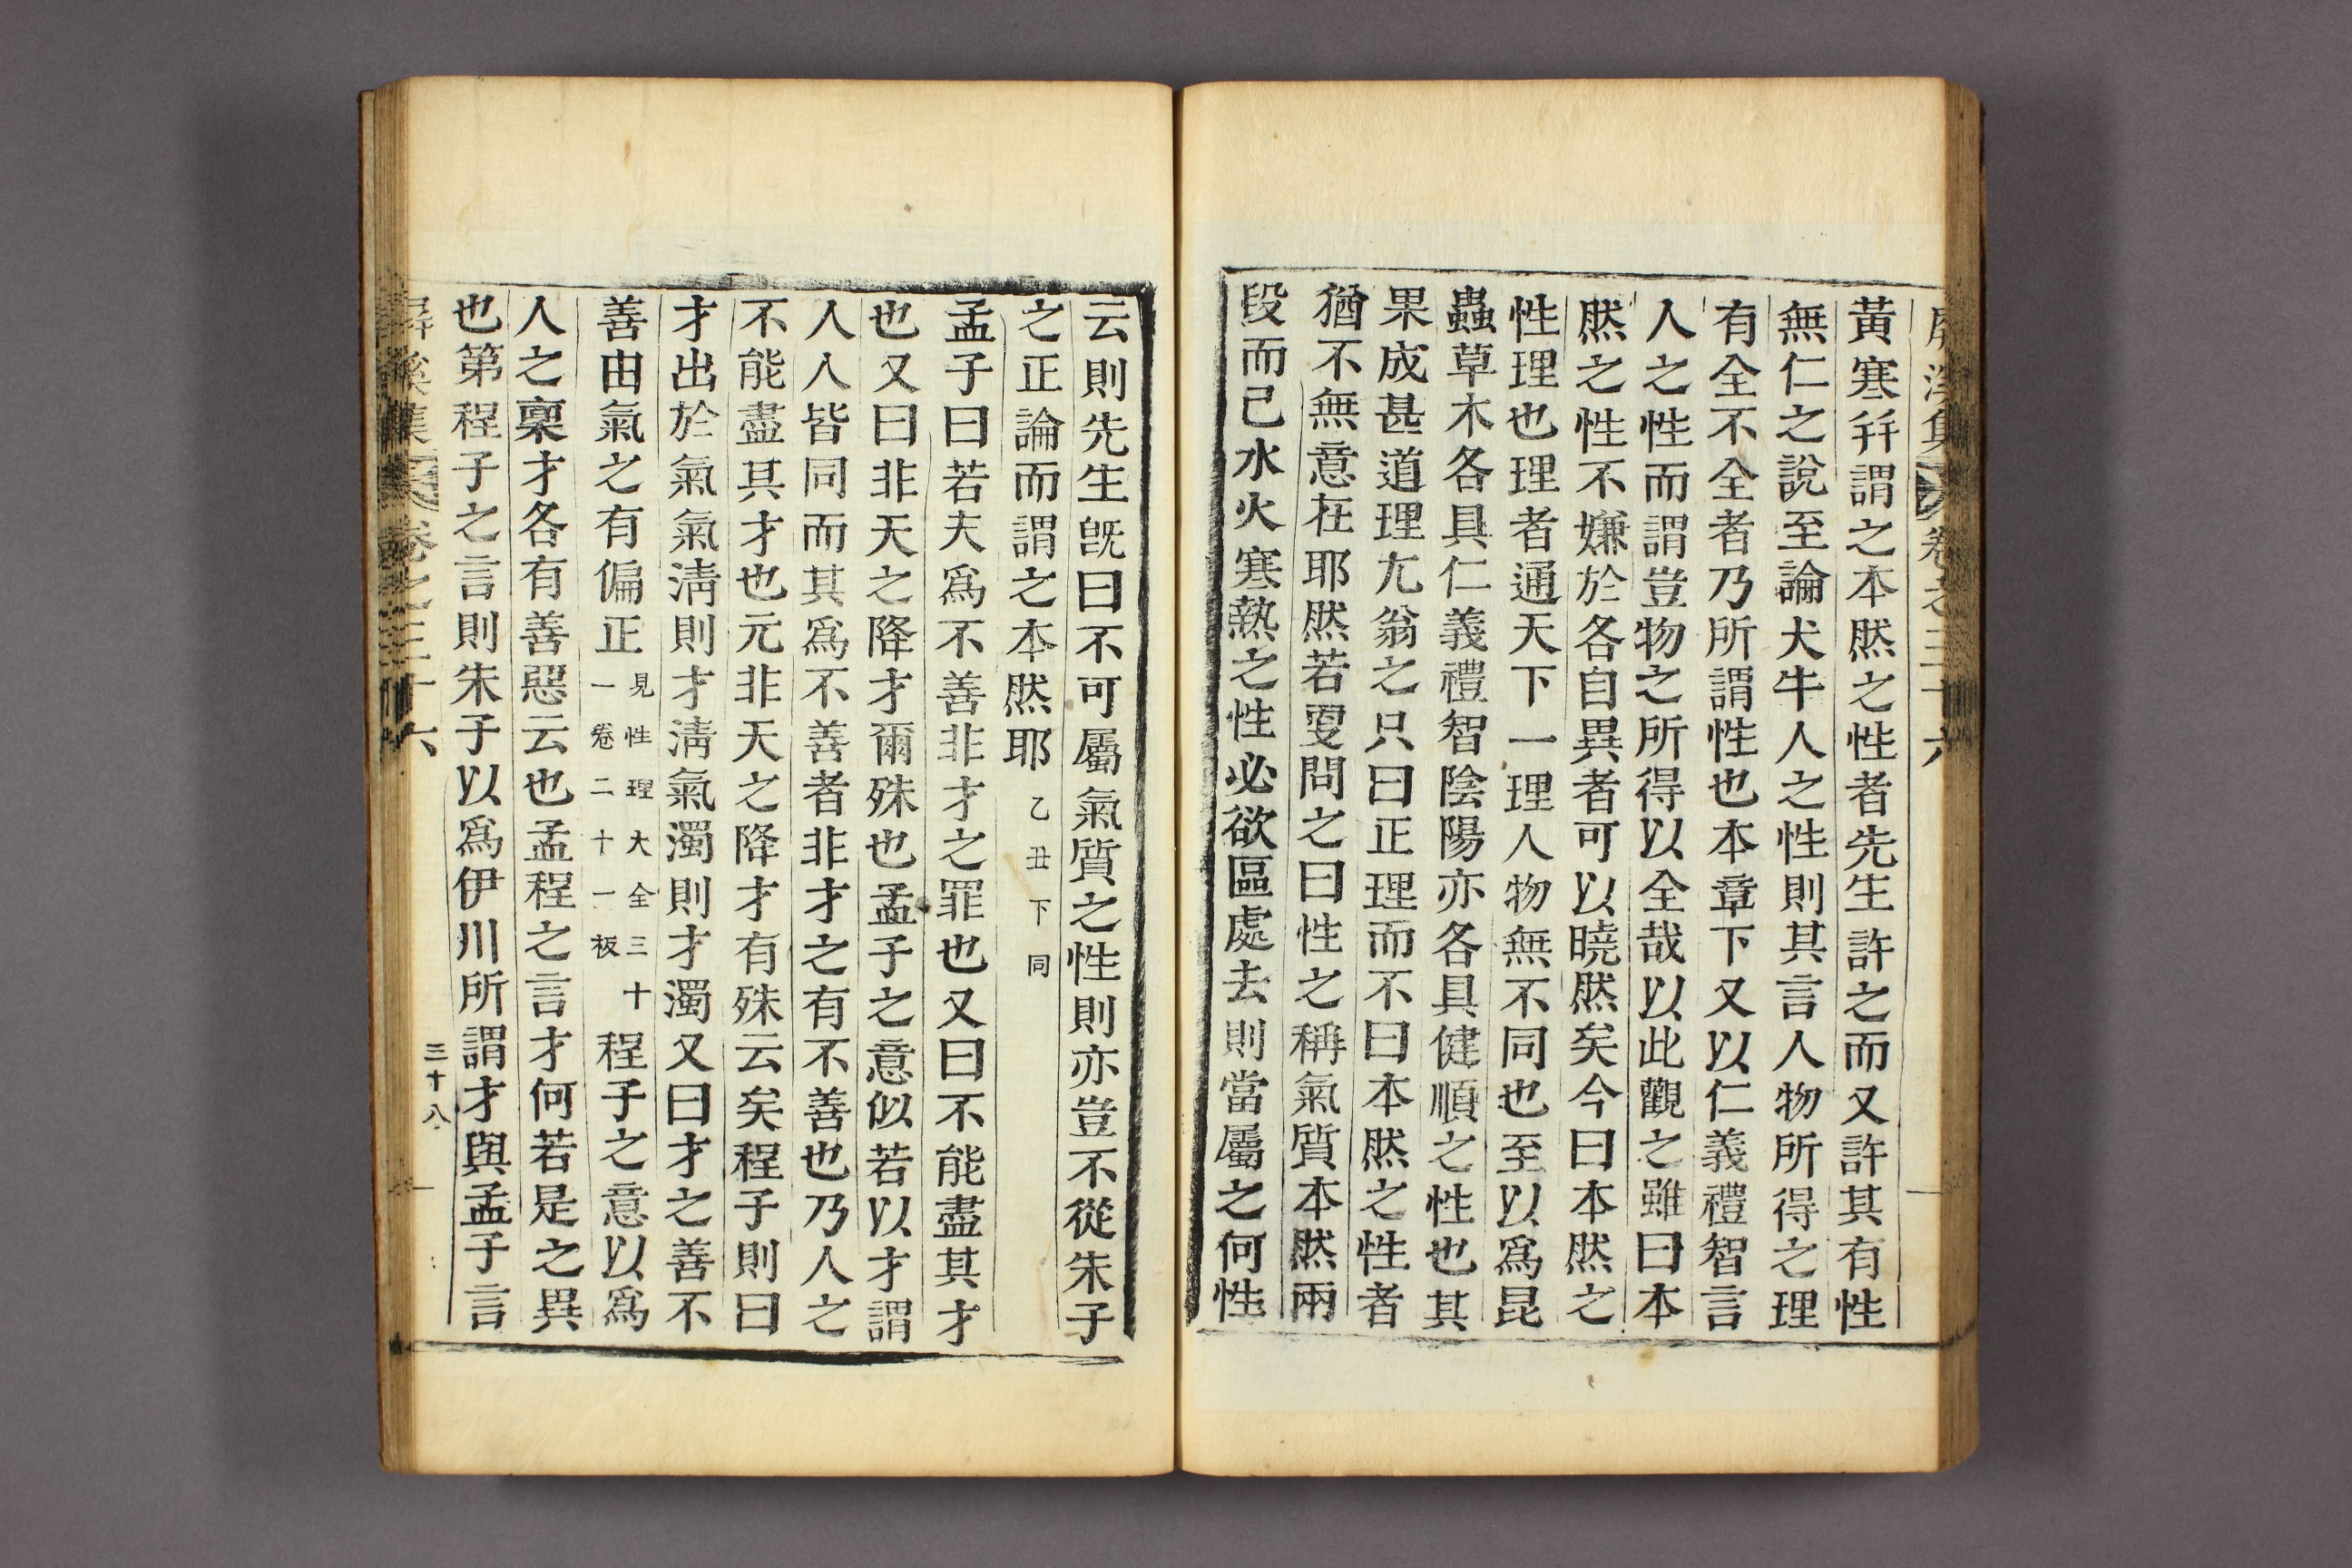 屛溪集 卷之三十六
黃寒䇹謂之本然之性者先生許之而又許其有性
無仁之說至論犬牛人之性則其言人物所得之理
有全不全者乃所謂性也本章下又以仁義禮智言
人之性而謂豈物之所得以全哉以此觀之雖曰本
然之性不嫌於各自異者可以曉然矣今曰本然之
性理也理者通天下一理人物無不同也至以爲昆
蟲草木各具仁義禮智陰陽亦各具健順之性也其
果成甚道理尤翁之只曰正理而不曰本然之性者
猶不無意在耶然若更問之曰性之稱氣質本然兩
段而已水火寒熱之性必欲區處去則當屬之何性
云則先生旣曰不可屬氣質之性則亦豈不從朱子
之正論而謂之本然耶 乙丑下同
孟子曰若夫爲不善非才之罪也又曰不能盡其才
也又曰非天之降才爾殊也孟子之意似若以才謂
人人皆同而其爲不善者非才之有不善也乃人之
不能盡其才也元非天之降才有殊云矣程子則曰
才出於氣氣淸則才淸氣濁則才濁又曰才之善不
善由氣之有偏正 見性理大全三十一卷二十一板 程子之意以爲
人之稟才各有善惡云也孟程之言才何若是之異
也第程子之言則朱子以爲伊川所謂才與孟子言
屛溪集 卷之三十六 三十八